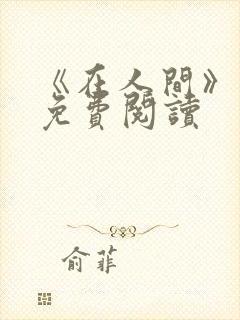 《在人間》
免費閱讀
俞菲